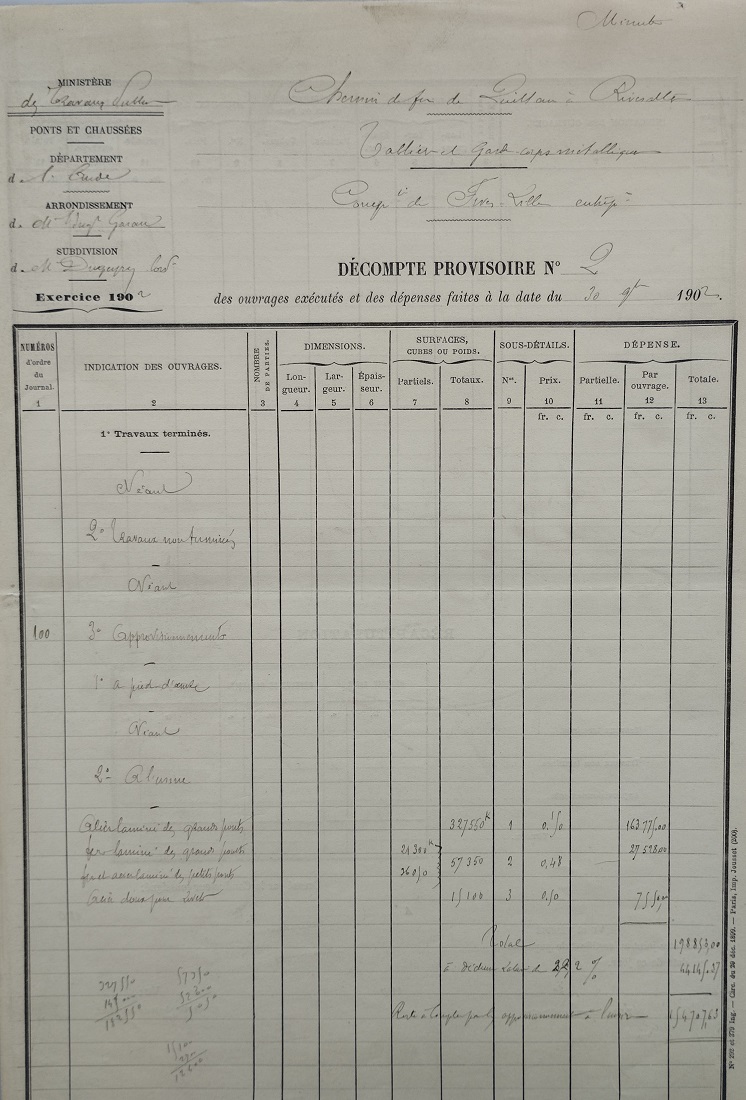 Minute
MINISTÈRE
des Travaux Publics
PONTS ET CHAUSSÉES
DÉPARTEMENT
de l'Aude
ARRONDISSEMENT
de Mr
SUBDIVISION
de Mr
Exercice 1902
Chemin de fer de Quillan à Rivesaltes
Tabliers et Garde-corps métalliques
Compie de Fives-Lille entrepr
DÉCOMPTE PROVISOIRE No 2
des ouvrages exécutés et des dépenses faites à la date du 30 9bre 1902.
NUMÉROS d'ordre du Journal. 1
INDICATION DES OUVRAGES. 2
NOMBRE DE PARTIES. 3
DIMENSIONS.
Longueur. 4
Largeur. 5
Épaisseur. 6
SURFACES, CUBES OU POIDS.
Partiels. 7
Totaux. 8
SOUS-DÉTAILS.
Nos. 9
Prix. 10
DÉPENSE.
Partielle. 11
Par ouvrage. 12
Totale. 13
fr. c. fr. c. fr. c. fr. c.
1° Travaux terminés.
Néant
2° Travaux non terminés
Néant
100 3° Approvisionnements
1° à pied d'œuvre
Néant
2° A l'usine
Acier laminé des grands ponts 327550k 1 0.50 163775.00
fers laminés des grands ponts 21300k 27528.00
57350 2 0,48
fer et acier laminé des petits ponts 36050
Acier doux pour rivets 15100 3 0.50 7550,00
Total 198853,00
à déduire 2 %
44145.37
Reste à compter pour les approvisionnements à l'usine 154707,63
327550 57350
15100
N° 292 et 379 Ing. — Circ. du 29 déc. 1899. — Paris, Imp. Jousset (200).